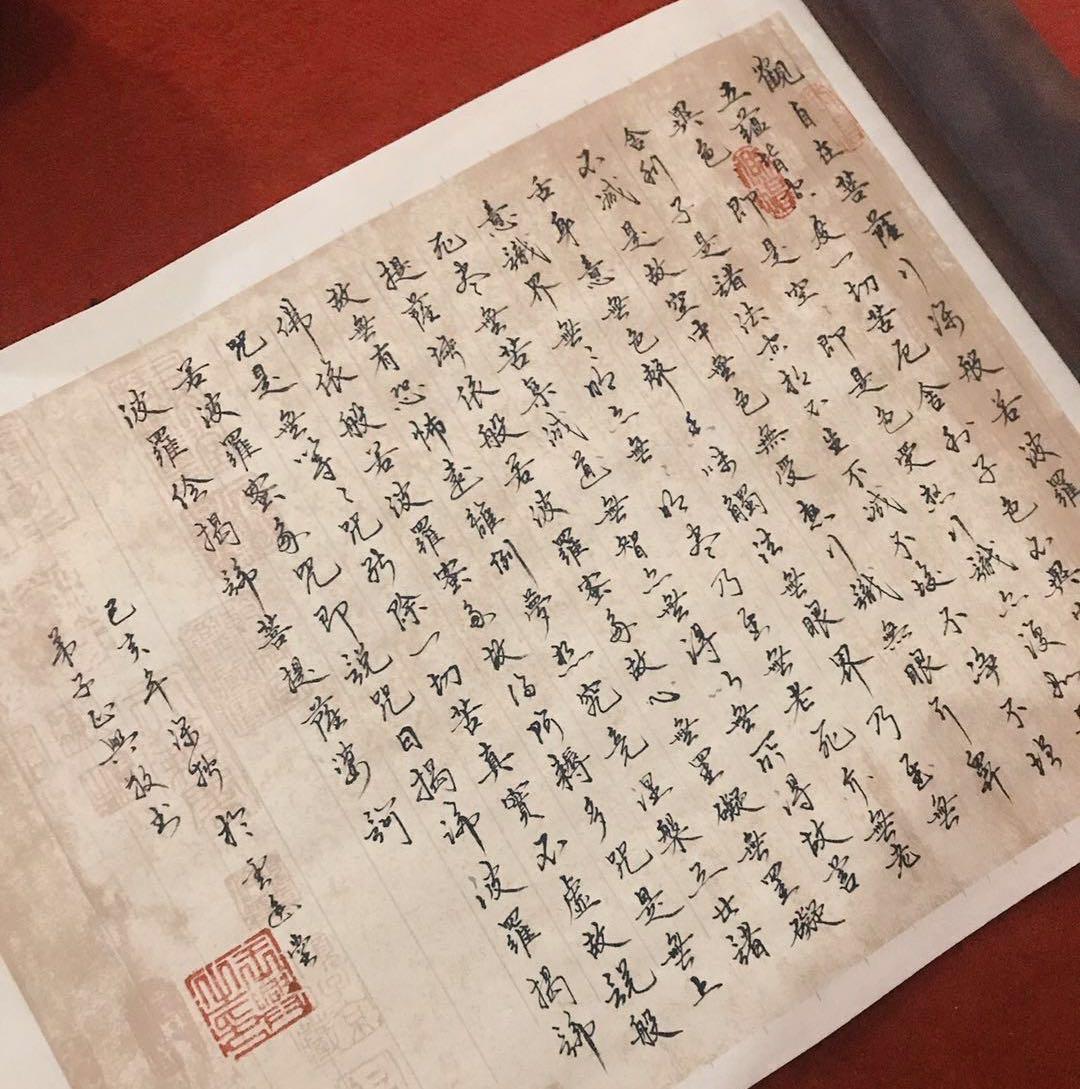 觀自在菩薩行深般若波羅
五蘊皆空度一切苦厄舍利子色不異
異色即是空〻即是色受想行識亦復如
舍利子是諸法空相不生不滅不垢不淨不增
不減是故空中無色無受想行識無眼耳鼻
舌身意無色聲香味觸法無眼界乃至無
意識界無〻明亦無〻明盡乃至無老死亦無老
死盡無苦集滅道無智亦無得以無所得故菩
提薩埵依般若波羅蜜多故心無罣礙無罣礙
故無有恐怖遠離倒夢想究竟涅槃三世諸
佛依般若波羅蜜多故得阿耨多咒是無上
咒是無等〻咒能除一切苦真實不虛故說般
若波羅蜜多咒即說咒曰揭諦波羅揭諦
波羅僧揭諦菩提薩婆訶
己亥年深秋於雲堂
弟子正興敬书